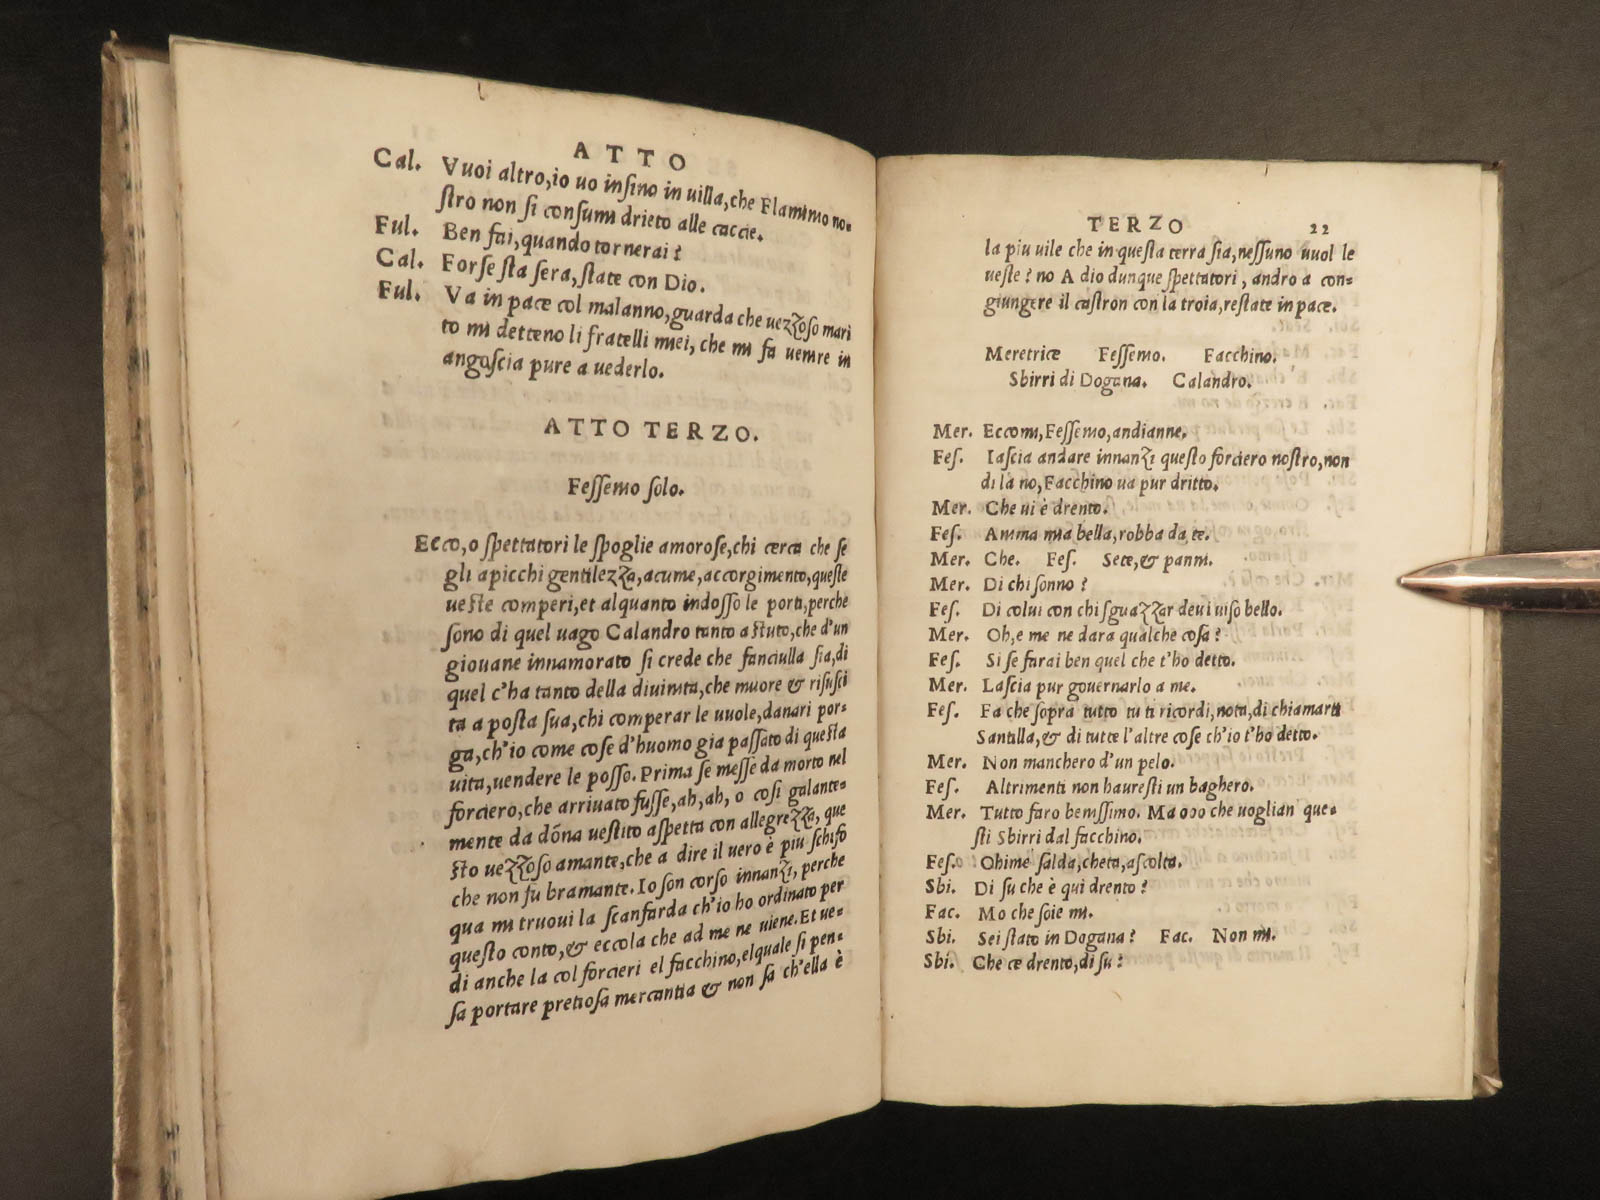 ATTO
Cal. Vuoi altro,io uo inſino in uilla,che Flaminio no-
ſtro non ſi conſumi drieto alle caccie.
Ful. Ben fai,quando tornerai?
Cal. Forſe ſta ſera,ſtate con Dio.
Ful. Va in pace col malanno,guarda che uezzoſo mari
to mi detteno li fratelli miei, che mi fa uenire in
angoſcia pure a uederlo.
ATTO TERZO.
Feſſenio ſolo.
Ecco,o ſpettatori le ſpoglie amoroſe,chi cerca che ſe
gli apicchi gentilezza,acume,accorgimento,queſte
ueſte comperi,et alquanto indoſſo le porti,perche
ſono di quel uago Calandro tanto aſtuto,che d'un
giouane innamorato ſi crede che fanciulla ſia,di
quel c'ha tanto della diuinita,che muore & riſuſci
ta a poſta ſua,chi comperar le uuole,danari por-
ga,ch'io come coſe d'huomo gia paſſato di queſta
uita,uendere le poſſo. Prima ſe meſſe da morto nel
forciero,che arriuato fuſſe,ah,ah, o coſi galante-
mente da dōna ueſtito aſpetta con allegrezza, que
ſto uezzoſo amante,che a dire il uero è piu ſchifo
che non fu bramante. Io ſon corſo innanzi, perche
qua mi truoui la ſcanfarda ch'io ho ordinato per
queſto conto,& eccola che ad me ne uiene. Et ue-
di anche la col forcieri el facchino,elquale ſi pen-
ſa portare pretioſa mercantia & non ſa ch'ella è
TERZO 22
la piu uile che in queſta terra ſia,neſſuno uuol le
ueſte? no A dio dunque ſpettatori, andro a con-
giungere il caſtron con la troia,reſtate in pace.
Meretrice Feſſenio. Facchino.
Sbirri di Dogana. Calandro.
Mer. Eccomi,Feſſenio,andianne.
Feſ. Laſcia andare innanzi queſto forciero noſtro,non
di là no,Facchino ua pur dritto.
Mer. Che ui è drento.
Feſ. Anima mia bella,robba da te.
Mer. Che. Feſ. Sete,& panni.
Mer. Di chi ſonno?
Feſ. Di colui con chi ſguazzar deui uiſo bello.
Mer. Oh,e me ne dara qualche coſa?
Feſ. Si ſe farai ben quel che t'ho detto.
Mer. Laſcia pur gouernarlo a me.
Feſ. Fa che ſopra tutto tu ti ricordi,nota,di chiamarti
Santilla,& di tutte l'altre coſe ch'io t'ho detto.
Mer. Non manchero d'un pelo.
Feſ. Altrimenti non haureſti un baghero.
Mer. Tutto faro beniſſimo. Ma ooo che uoglian que-
ſti Sbirri dal facchino.
Feſ. Ohime ſalda,cheta,aſcolta.
Sbi. Di ſu che è qui drento?
Fac. Mo che ſoie mi.
Sbi. Sei ſtato in Dogana? Fac. Non mi.
Sbi. Che ce drento,di ſu?